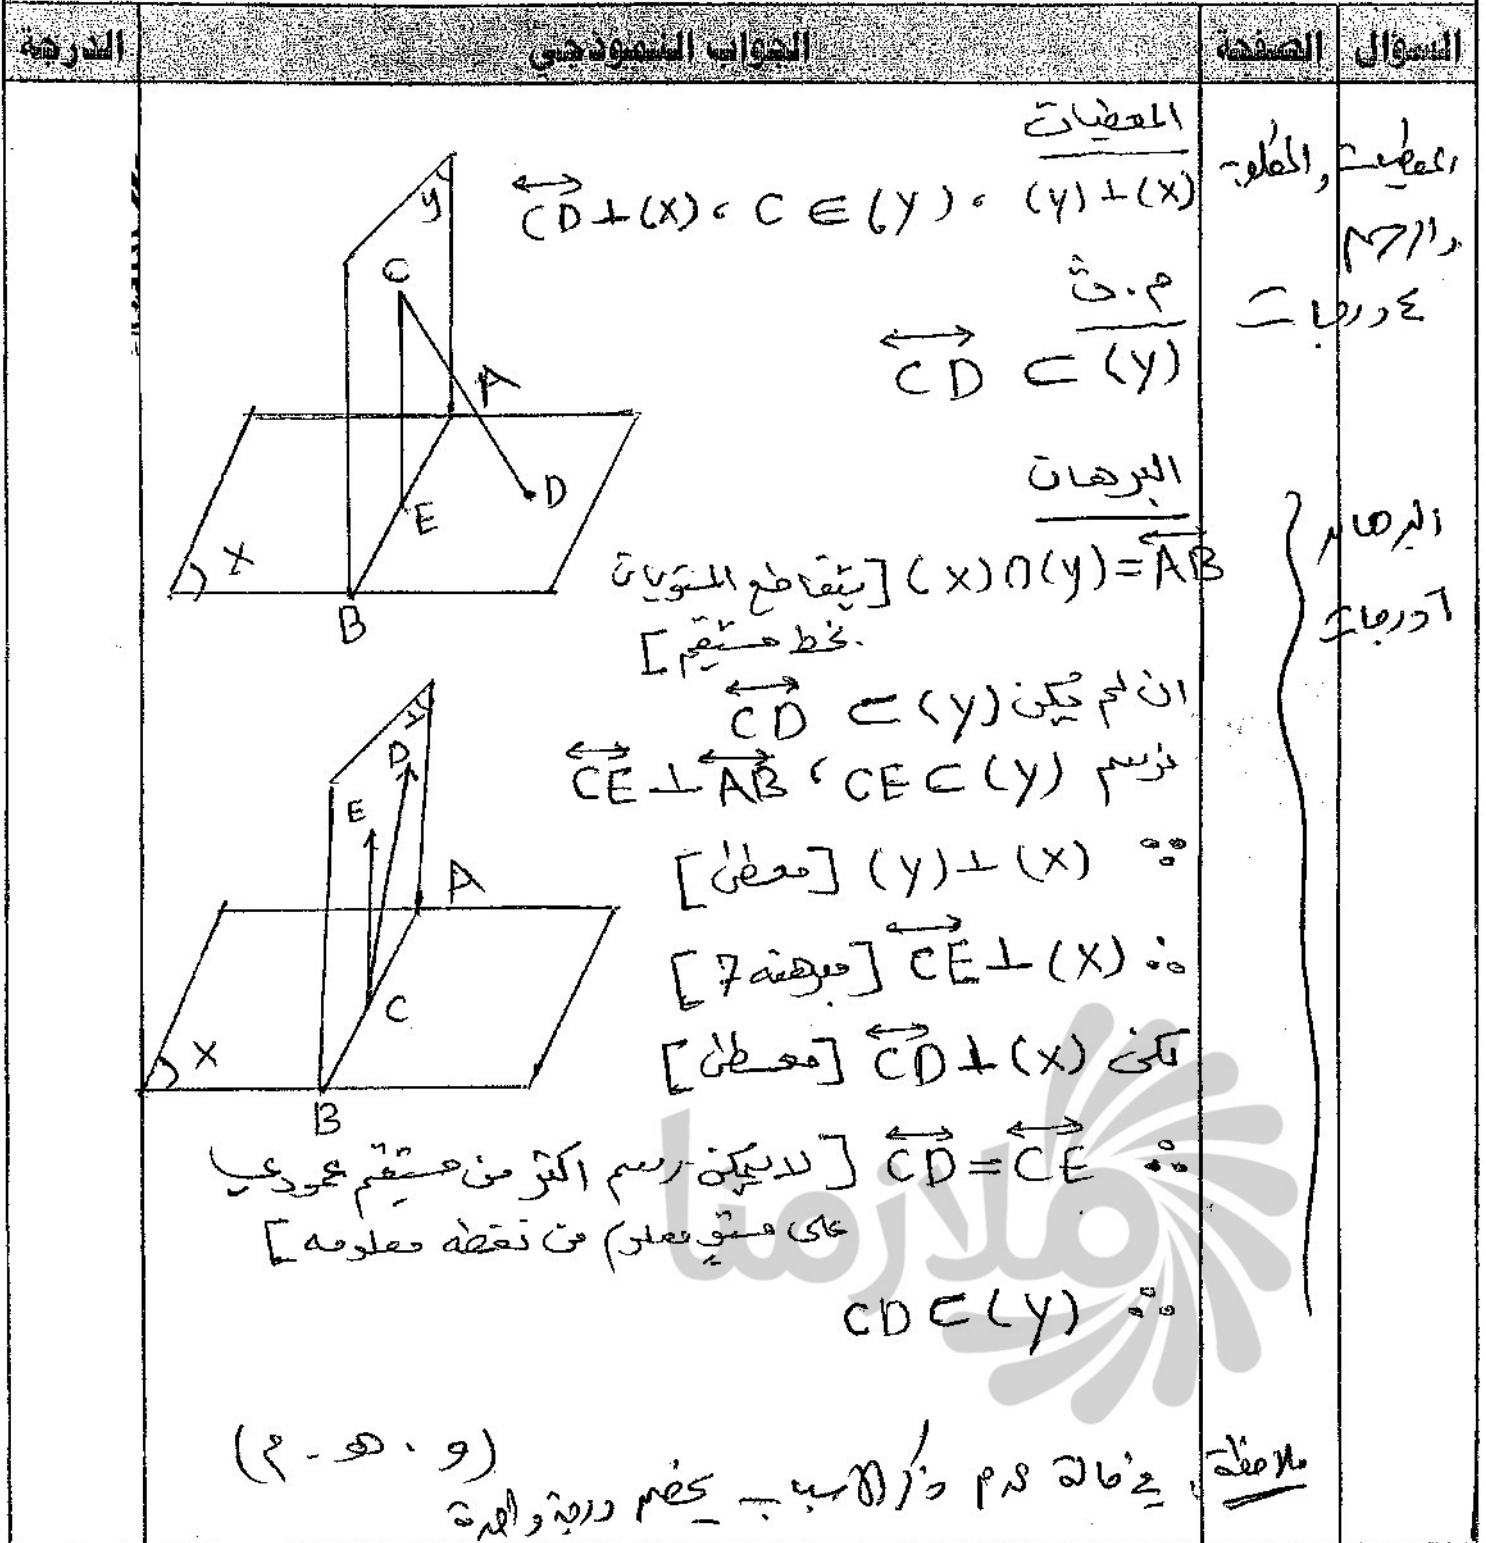 السؤال الصفحة الجواب النموذجي الدرجة
المعطيات
(Y)⊥(X) ، C ∈ (Y) ، CD⊥(X)
والمطلوب
والرسم
٤ درجات
م.ث
CD ⊂ (Y)
البرهان
البرهان
٦ درجات
(X)∩(Y)=AB [يتقاطع المستويان
بخط مستقيم]
ان لم يكن CD ⊂ (Y)
نرسم CE⊥AB ، CE⊂(Y)
∵ (Y)⊥(X) [معطى]
∴ CE⊥(X) [مبرهنة 7]
لكن CD⊥(X) [معطى]
∴ CD=CE [لا يمكن رسم اكثر من مستقيم عمودي
على مستوٍ معلوم من نقطة معلومه]
∴ CD⊂(Y)
ملاحظة: في حالة عدم ذكر الاسباب يخصم درجة واحدة
(و . هـ - م)
y
C
A
D
E
X
B
y
D
E
A
C
X
B
ملازمنا